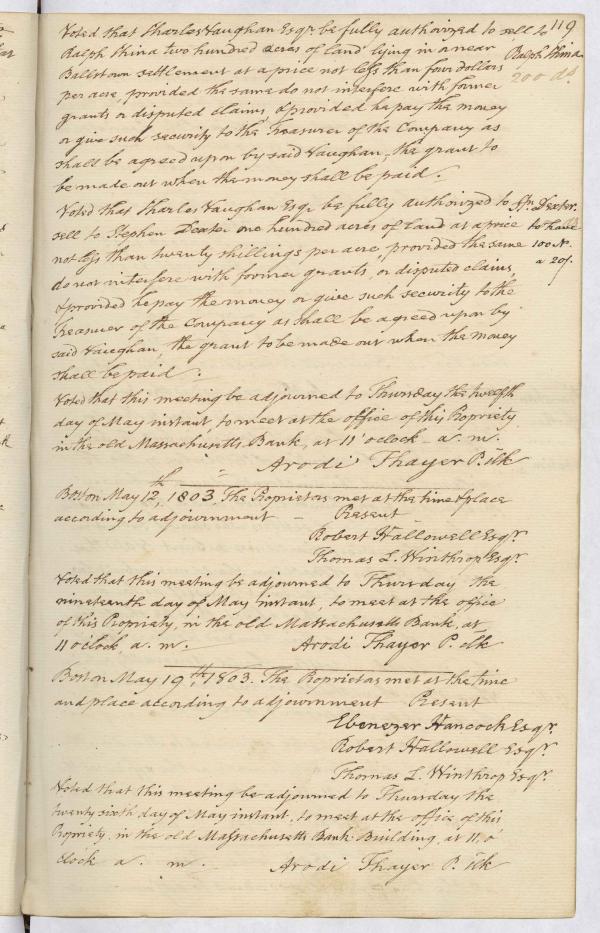 119
Voted that Charles Vaughan Esqr. be fully authorized to sell to
Ralph China two hundred acres of land lying in or near
Ballstown settlement at a price not less than four dollars
per acre, provided the same do not interfere with former
grants or disputed claims, & provided he pay the money
or give such security to the Treasurer of the Company as
shall be agreed upon by said Vaughan, the grant to
be made out when the money shall be paid.
Ralph China
200 
Voted that Charles Vaughan Esqr. be fully authorized to
sell to Stephen Dexter one hundred acres of land at a price
not less than twenty shillings per acre, provided the same
do not interfere with former grants, or disputed claims,
& provided he pay the money or give such security to the
Treasurer of the Company as shall be agreed upon by
said Vaughan, the grant to be made out when the money
shall be paid.
Dexter
to have
100 As.
a 20/.
Voted that this meeting be adjourned to Thursday the twelfth
day of May instant, to meet at the office of this Propriety
in the old Massachusetts Bank, at 11 oclock a. m.
Arodi Thayer P. Clk
Boston May 12th, 1803, The Proprietors met at the time & place
according to adjournment – Present
Robert Hallowell Esqr.
Thomas L. Winthrop Esqr.
Voted that this meeting be adjourned to Thursday the
nineteenth day of May instant, to meet at the office
of this Propriety, in the old Massachusetts Bank, at
11 oclock, a. m. Arodi Thayer P. Clk
Boston May 19th, 1803. The Proprietors met at the time
and place according to adjournment Present
Ebenezer Hancock Esqr.
Robert Hallowell Esqr.
Thomas L. Winthrop Esqr.
Voted that this meeting be adjourned to Thursday the
twenty sixth day of May instant, to meet at the office of this
Propriety, in the old Massachusetts Bank Building, at 11, o'
clock a. m. Arodi Thayer P. Clk